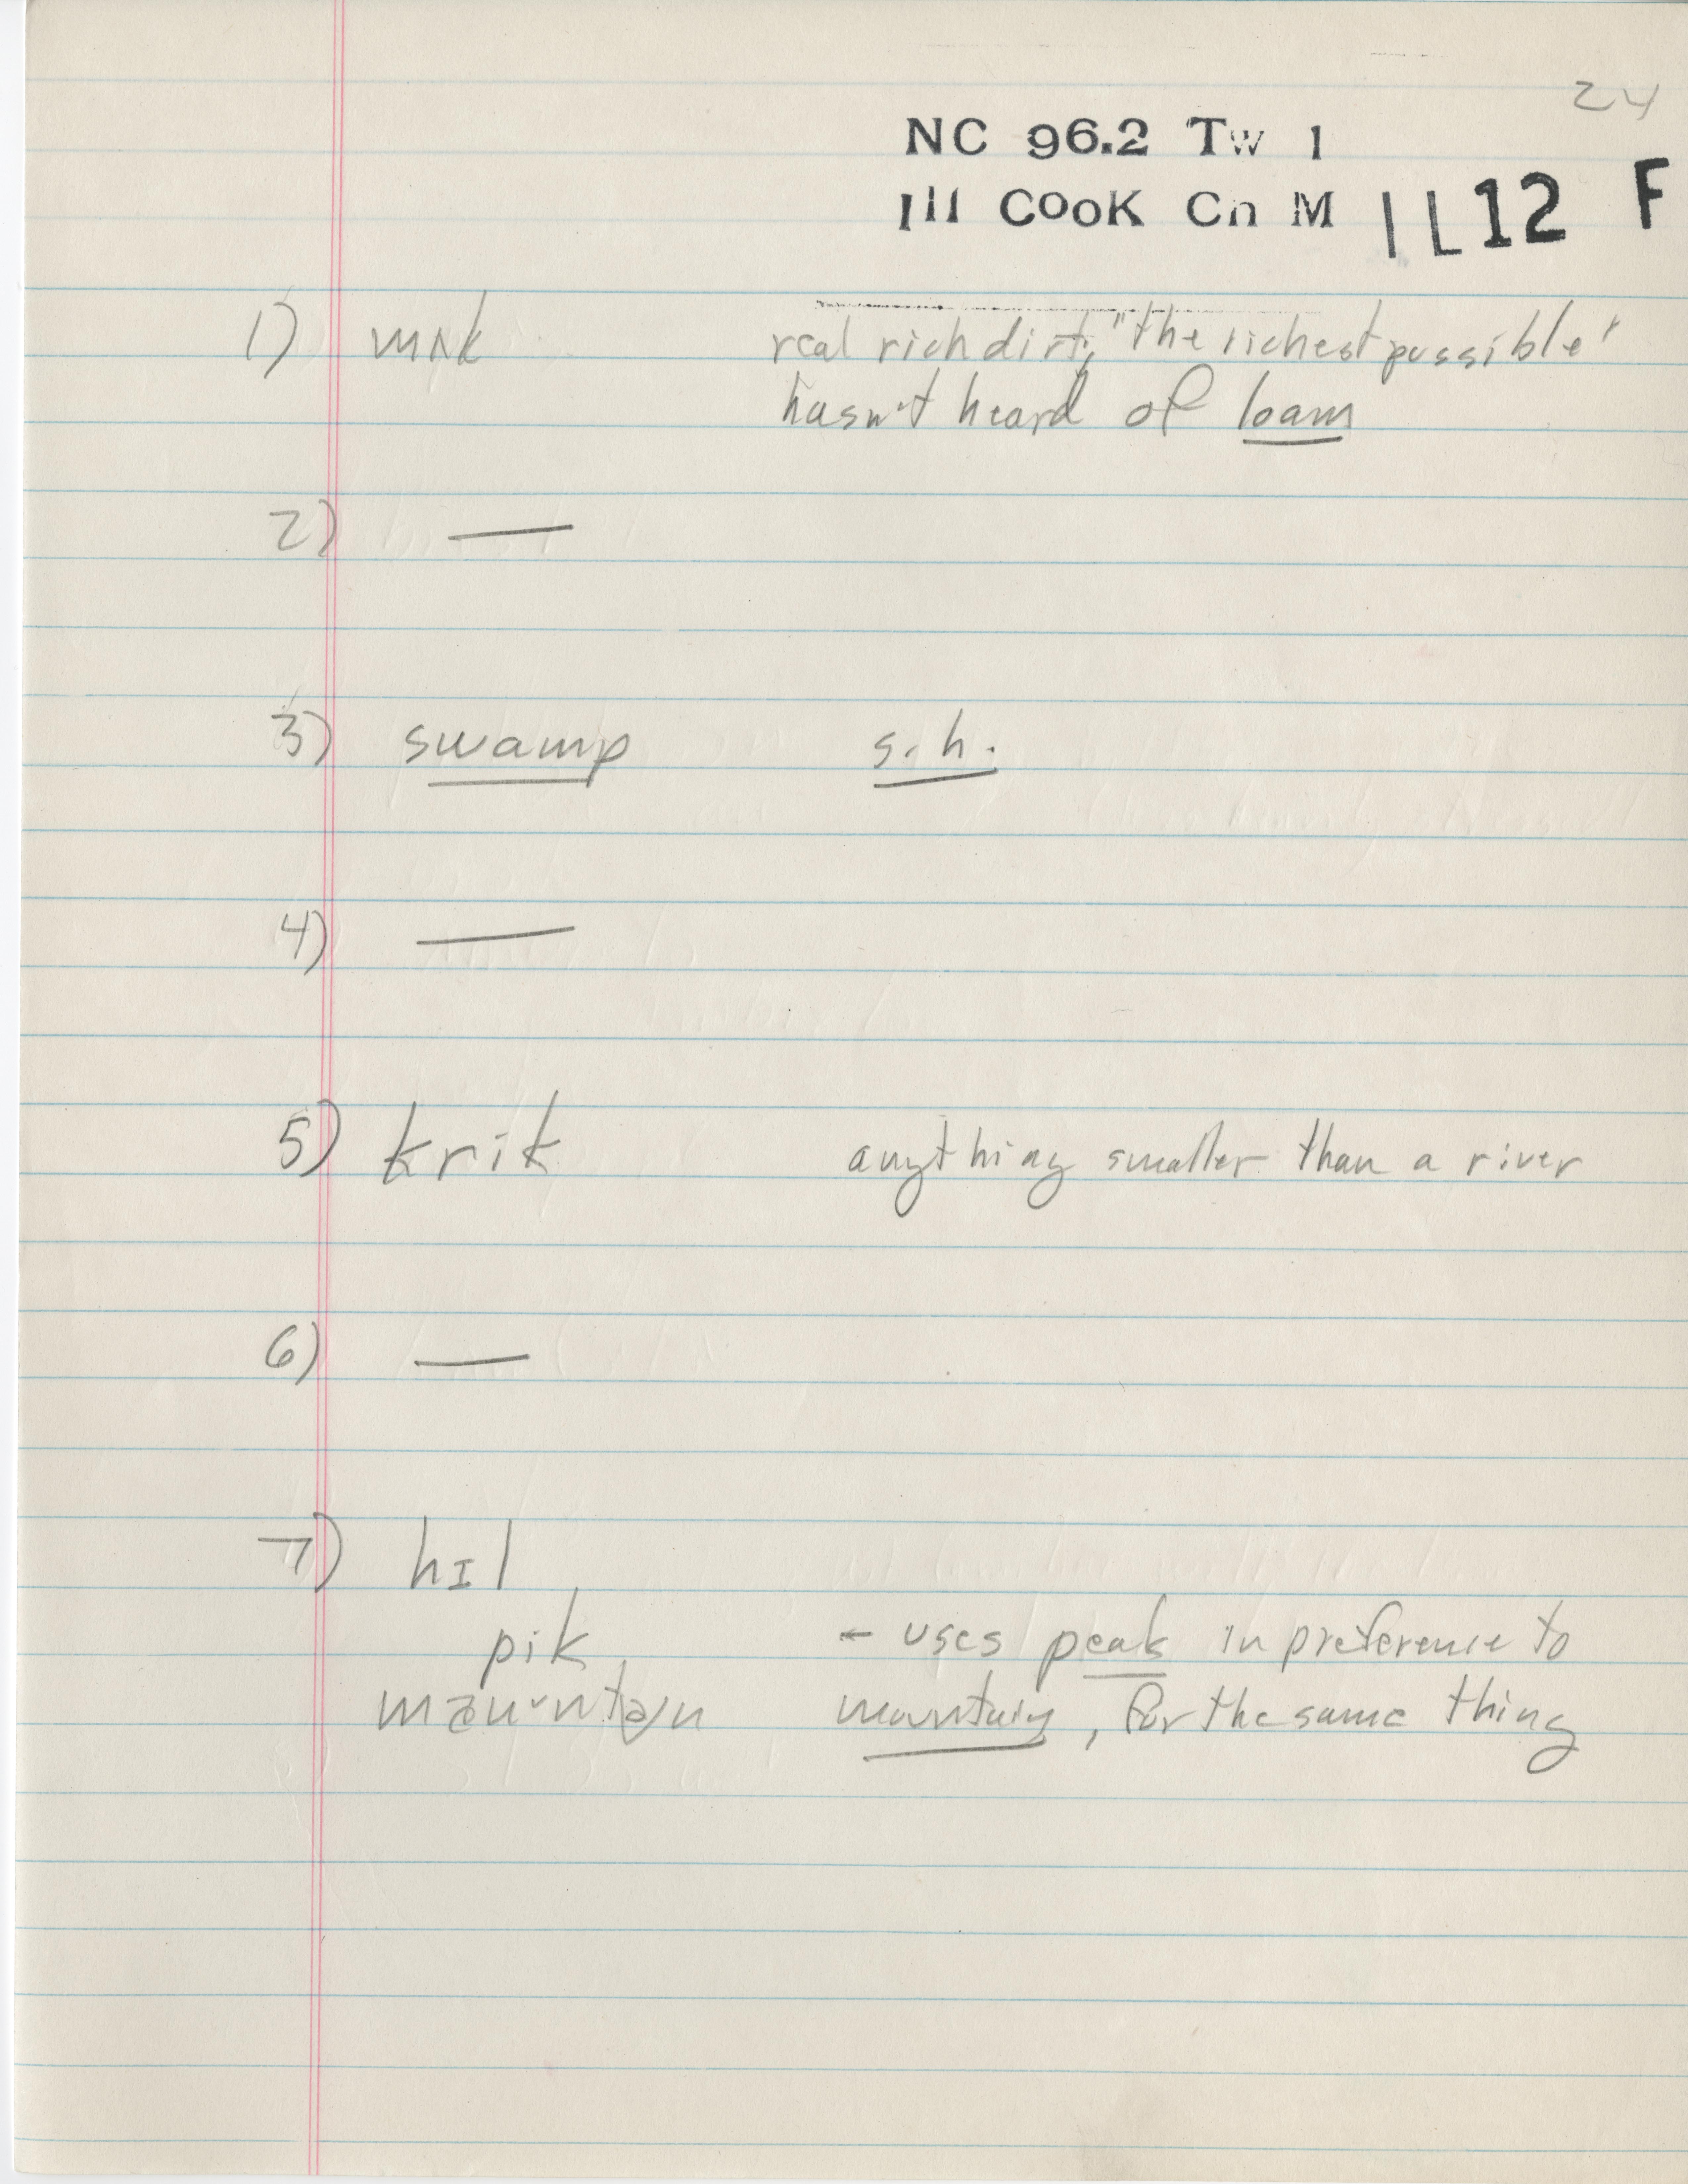 24
NC 96.2 Tw 1
Ill Cook Cn M IL12 F
1) mʌk real rich dirt; "the richest possible"
hasn't heard of loam
2) —
3) swamp s.h.
4) —
5) krik anything smaller than a river
6) —
7) hɪl
pik ← uses peak in preference to
mountain, for the same thing